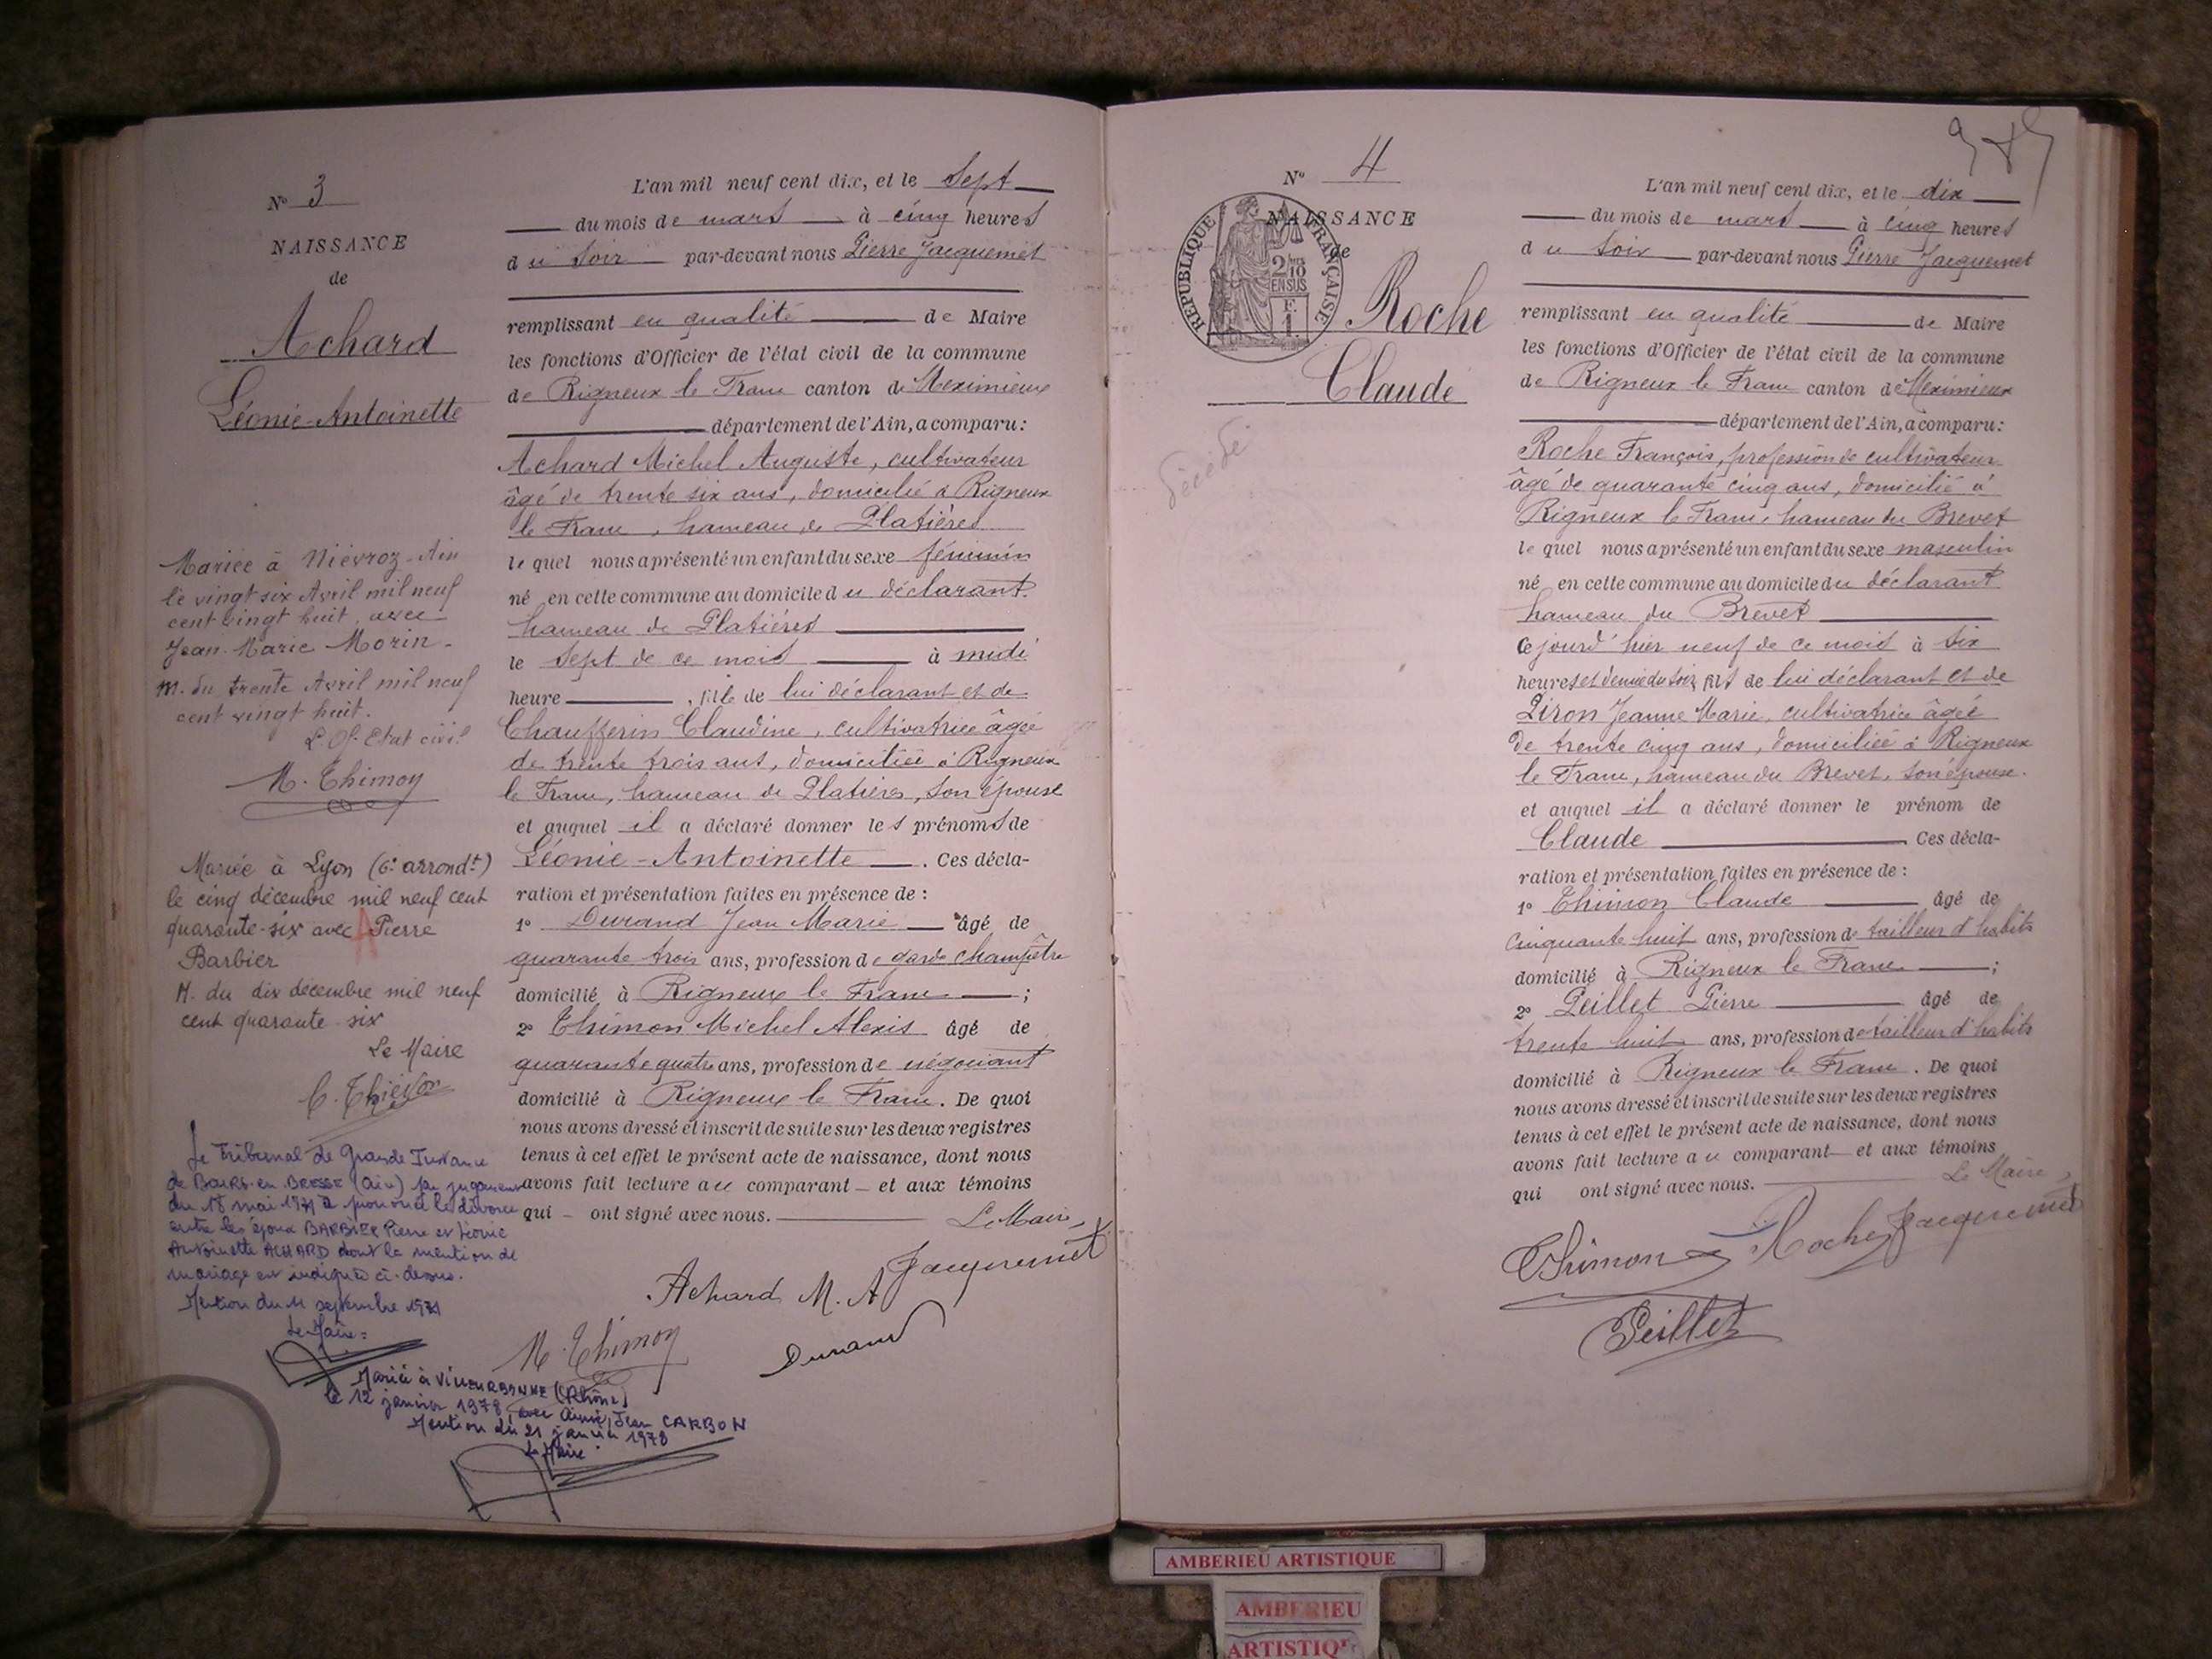 N° 3
NAISSANCE
de
Achard
Léonie-Antoinette
Mariée à Niévroz-Ain
le vingt six Avril mil neuf
cent vingt huit, avec
Jean-Marie Morin.
M. du trente Avril mil neuf
cent vingt huit.
L'Of. Etat civil
M. Thimon
Mariée à Lyon (6e arrondt)
le cinq décembre mil neuf cent
quarante-six avec Pierre
Barbier
M. du dix décembre mil neuf
cent quarante-six
Le Maire
Le Tribunal de Grande Instance
de BOURG-en-BRESSE (Ain) par jugement
du 18 mai 1971 a prononcé le divorce
entre les époux BARBIER Pierre et Léonie
Antoinette ACHARD dont la mention de
mariage est indiquée ci-dessus.
Mention du 11 septembre 1971
Le Maire:
Mariée à VILLEURBANNE (Rhône)
le 12 janvier 1978, avec Aimé, Jean CARBON
Mention du 21 janvier 1978
Le Maire
L'an mil neuf cent dix, et le sept
du mois de mars à cinq heures
du soir par-devant nous Pierre Jacquemet
remplissant en qualité de Maire
les fonctions d'Officier de l'état civil de la commune
de Rigneux le Franc canton de Meximieux
département de l'Ain, a comparu:
Achard Michel Auguste, cultivateur
âgé de trente six ans, domicilié à Rigneux
le Franc, hameau de Platières
lequel nous a présenté un enfant du sexe féminin
né en cette commune au domicile du déclarant
hameau de Platières
le sept de ce mois à midi
heure, fille de lui déclarant et de
Chaufferin Claudine, cultivatrice âgée
de trente trois ans, domiciliée à Rigneux
le Franc, hameau de Platières, son épouse
et auquel il a déclaré donner les prénoms de
Léonie-Antoinette. Ces décla-
ration et présentation faites en présence de :
1° Durand Jean Marie âgé de
quarante trois ans, profession de garde champêtre
domicilié à Rigneux le Franc ;
2° Thimon Michel Alexis âgé de
quarante quatre ans, profession de négociant
domicilié à Rigneux le Franc. De quoi
nous avons dressé et inscrit de suite sur les deux registres
tenus à cet effet le présent acte de naissance, dont nous
avons fait lecture au comparant et aux témoins
qui ont signé avec nous. Le Maire,
Achard M. A Jacquemet
M. Thimon Durand
N° 4
NAISSANCE
de
REPUBLIQUE FRANÇAISE
2/10
EN SUS
F.
1
Roche
Claude
Décédé
L'an mil neuf cent dix, et le dix
du mois de mars à cinq heures
du soir par-devant nous Pierre Jacquemet
remplissant en qualité de Maire
les fonctions d'Officier de l'état civil de la commune
de Rigneux le Franc canton de Meximieux
département de l'Ain, a comparu:
Roche François, profession de cultivateur
âgé de quarante cinq ans, domicilié à
Rigneux le Franc hameau du Brevet
lequel nous a présenté un enfant du sexe masculin
né en cette commune au domicile du déclarant
hameau du Brevet
ce jourd'hier neuf de ce mois à six
heures et demie du soir, fils de lui déclarant et de
Piron Jeanne Marie, cultivatrice âgée
de trente cinq ans, domiciliée à Rigneux
le Franc, hameau du Brevet, son épouse.
et auquel il a déclaré donner le prénom de
Claude Ces décla-
ration et présentation faites en présence de :
1° Thimon Claude âgé de
cinquante huit ans, profession de tailleur d'habits
domicilié à Rigneux le Franc ;
2° Peillet Pierre âgé de
trente huit ans, profession de tailleur d'habits
domicilié à Rigneux le Franc. De quoi
nous avons dressé et inscrit de suite sur les deux registres
tenus à cet effet le présent acte de naissance, dont nous
avons fait lecture au comparant et aux témoins
qui ont signé avec nous. Le Maire,
Thimon Roche Jacquemet
Peillet
AMBERIEU ARTISTIQUE
AMBERIEU
ARTISTIQ